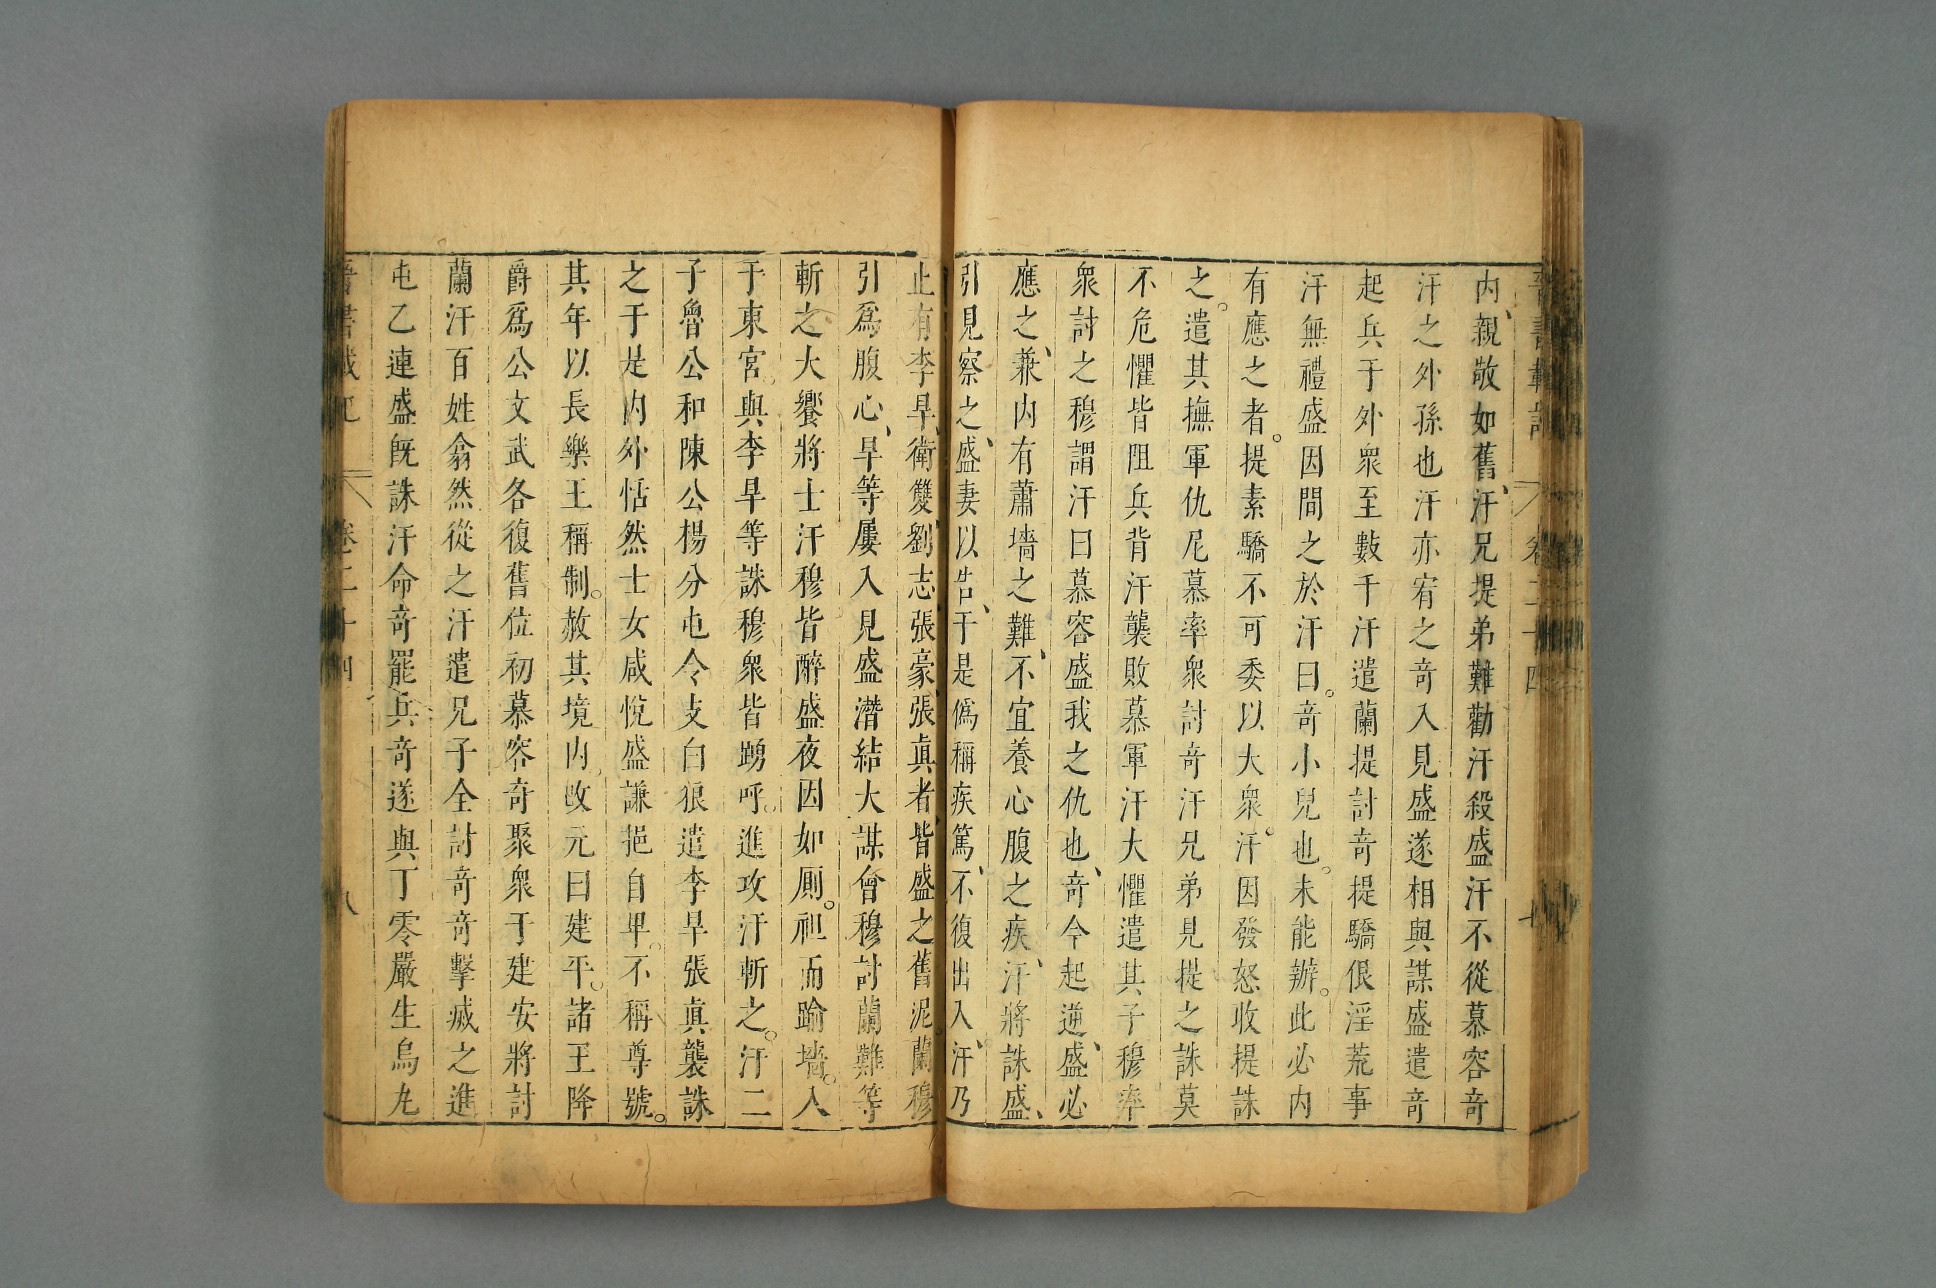 晉書載記 卷二十四 七
內親敬如舊汗兄提弟難勸汗殺盛汗不從慕容奇
汗之外孫也汗亦宥之奇入見盛遂相與謀盛遣奇
起兵于外衆至數千汗遣蘭提討奇提驕佷淫荒事
汗無禮盛因間之於汗曰奇小兒也未能辦此必內
有應之者提素驕不可委以大衆汗因發怒收提誅
之遣其撫軍仇尼慕率衆討奇汗兄弟見提之誅莫
不危懼皆阻兵背汗襲敗慕軍汗大懼遣其子穆率
衆討之穆謂汗曰慕容盛我之仇也奇今起逆盛必
應之兼內有蕭墻之難不宜養心腹之疾汗將誅盛
引見察之盛妻以告于是僞稱疾篤不復出入汗乃
止有李旱衛雙劉志張豪張眞者皆盛之舊泥蘭穆
引爲腹心旱等屢入見盛潛結大謀會穆討蘭難等
斬之大饗將士汗穆皆醉盛夜因如厠袒而踰墻入
于東宮與李旱等誅穆衆皆踴呼進攻汗斬之汗二
子魯公和陳公楊分屯令支白狼遣李旱張眞襲誅
之于是內外恬然士女咸悅盛謙挹自卑不稱尊號
其年以長樂王稱制赦其境內改元曰建平諸王降
爵爲公文武各復舊位初慕容奇聚衆于建安將討
蘭汗百姓翕然從之汗遣兄子全討奇奇擊滅之進
屯乙連盛旣誅汗命奇罷兵奇遂與丁零嚴生烏丸
晉書載記 卷二十四 八